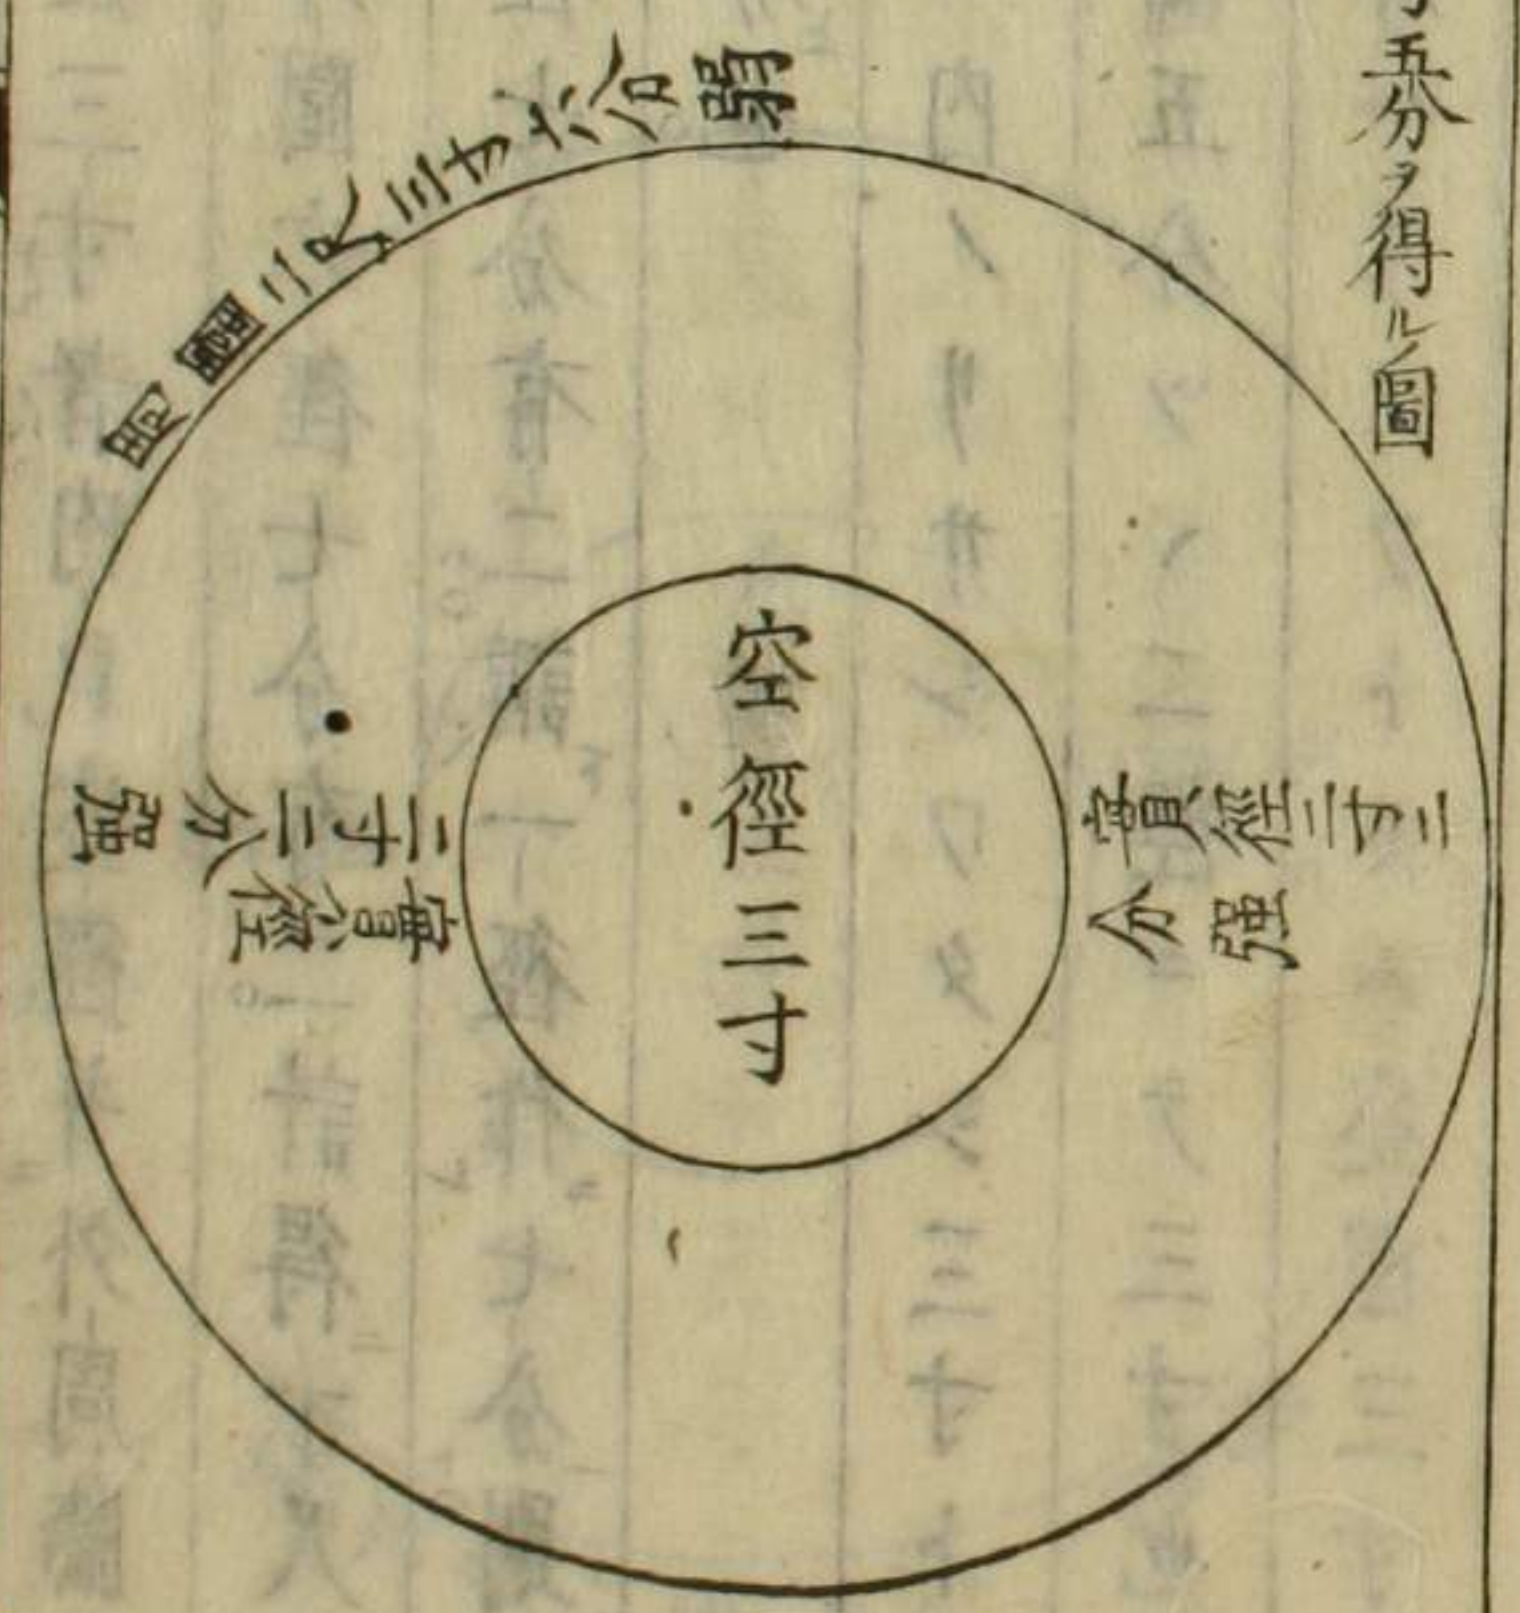 五分ヲ得ルノ圖
四圍二尺三寸六分弱
空徑三寸
實徑二寸二
分強
實徑
二寸二分强